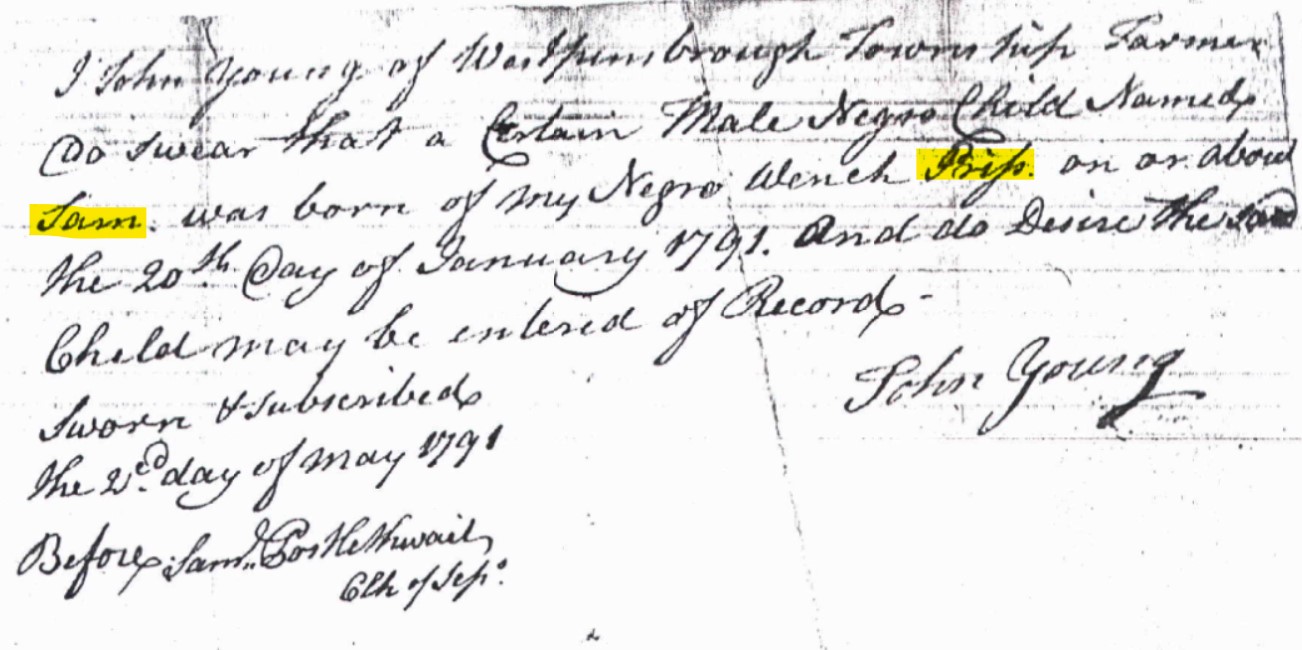 I John Young of Westpennsbrough Township Farmer
Do swear that a Certain Male Negro Child Named
Sam. was born of my Negro Wench Priss. on or about
the 20th Day of January 1791. And do Desire the said
Child may be entered of Record -
John Young
Sworn & subscribed
the 2cd. day of May 1791
Before Saml. Postlethwait
Clk of Sess.